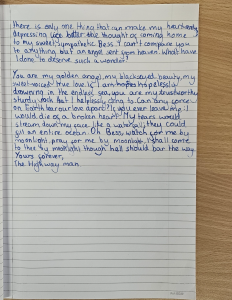 There is only one thing that can make my heartrendingly
depressing life better the thought of coming home
to my sweet, sympathetic Bess. I can't compare you
to anything but an angel sent from heaven. What have
I done to deserve such a wonder?
You are my golden angel, my blackeyed beauty, my
sweet-voiced true love. If I am hopelessly
drowning in the endless sea, you are my trustworthy
sturdy rock that I helplessly cling to. Can any force
on Earth tear our love apart? If you ever leave me I
would die of a broken heart. My tears would
stream down my face like a waterfall, they could
fill an entire ocean. Oh Bess, watch for me by
moonlight, pray for me by moonlight. I shall come
to thee by moonlight though hell should bar the way
Yours forever,
The Highway man.